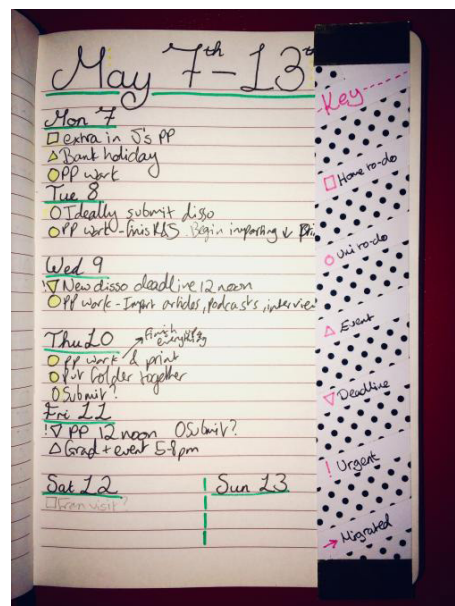 May 7th-13t
Mon 7
extra in J's PP
Bank holiday
PP work
Tue 8
Ideally submit disso
PP work - Begin importing &
Wed 9
! New disso deadline 12 noon
PP work - Import articles, podcasts, interview
Thu 10 → Finish everything
PP work & print
Put folder together
Submit?
Fri 11
! PP 12 noon Submit?
Grad + event 5-8pm
Sat 12
Gran visit?
Sun 13
Key
Home to-do
Uni to-do
Event
Deadline
! Urgent
→ Migrated